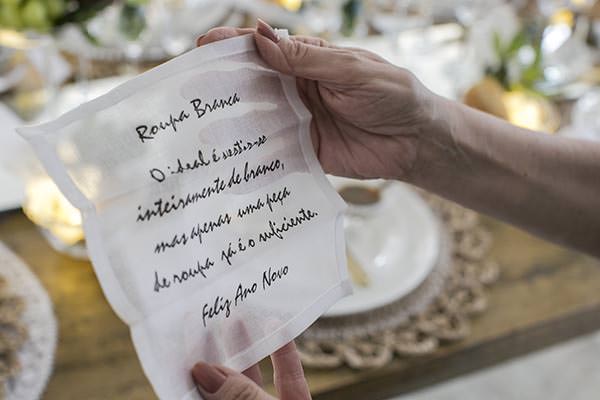 Roupa Branca
O ideal é vestir-se
inteiramente de branco,
mas apenas uma peça
de roupa já é o suficiente.
Feliz Ano Novo